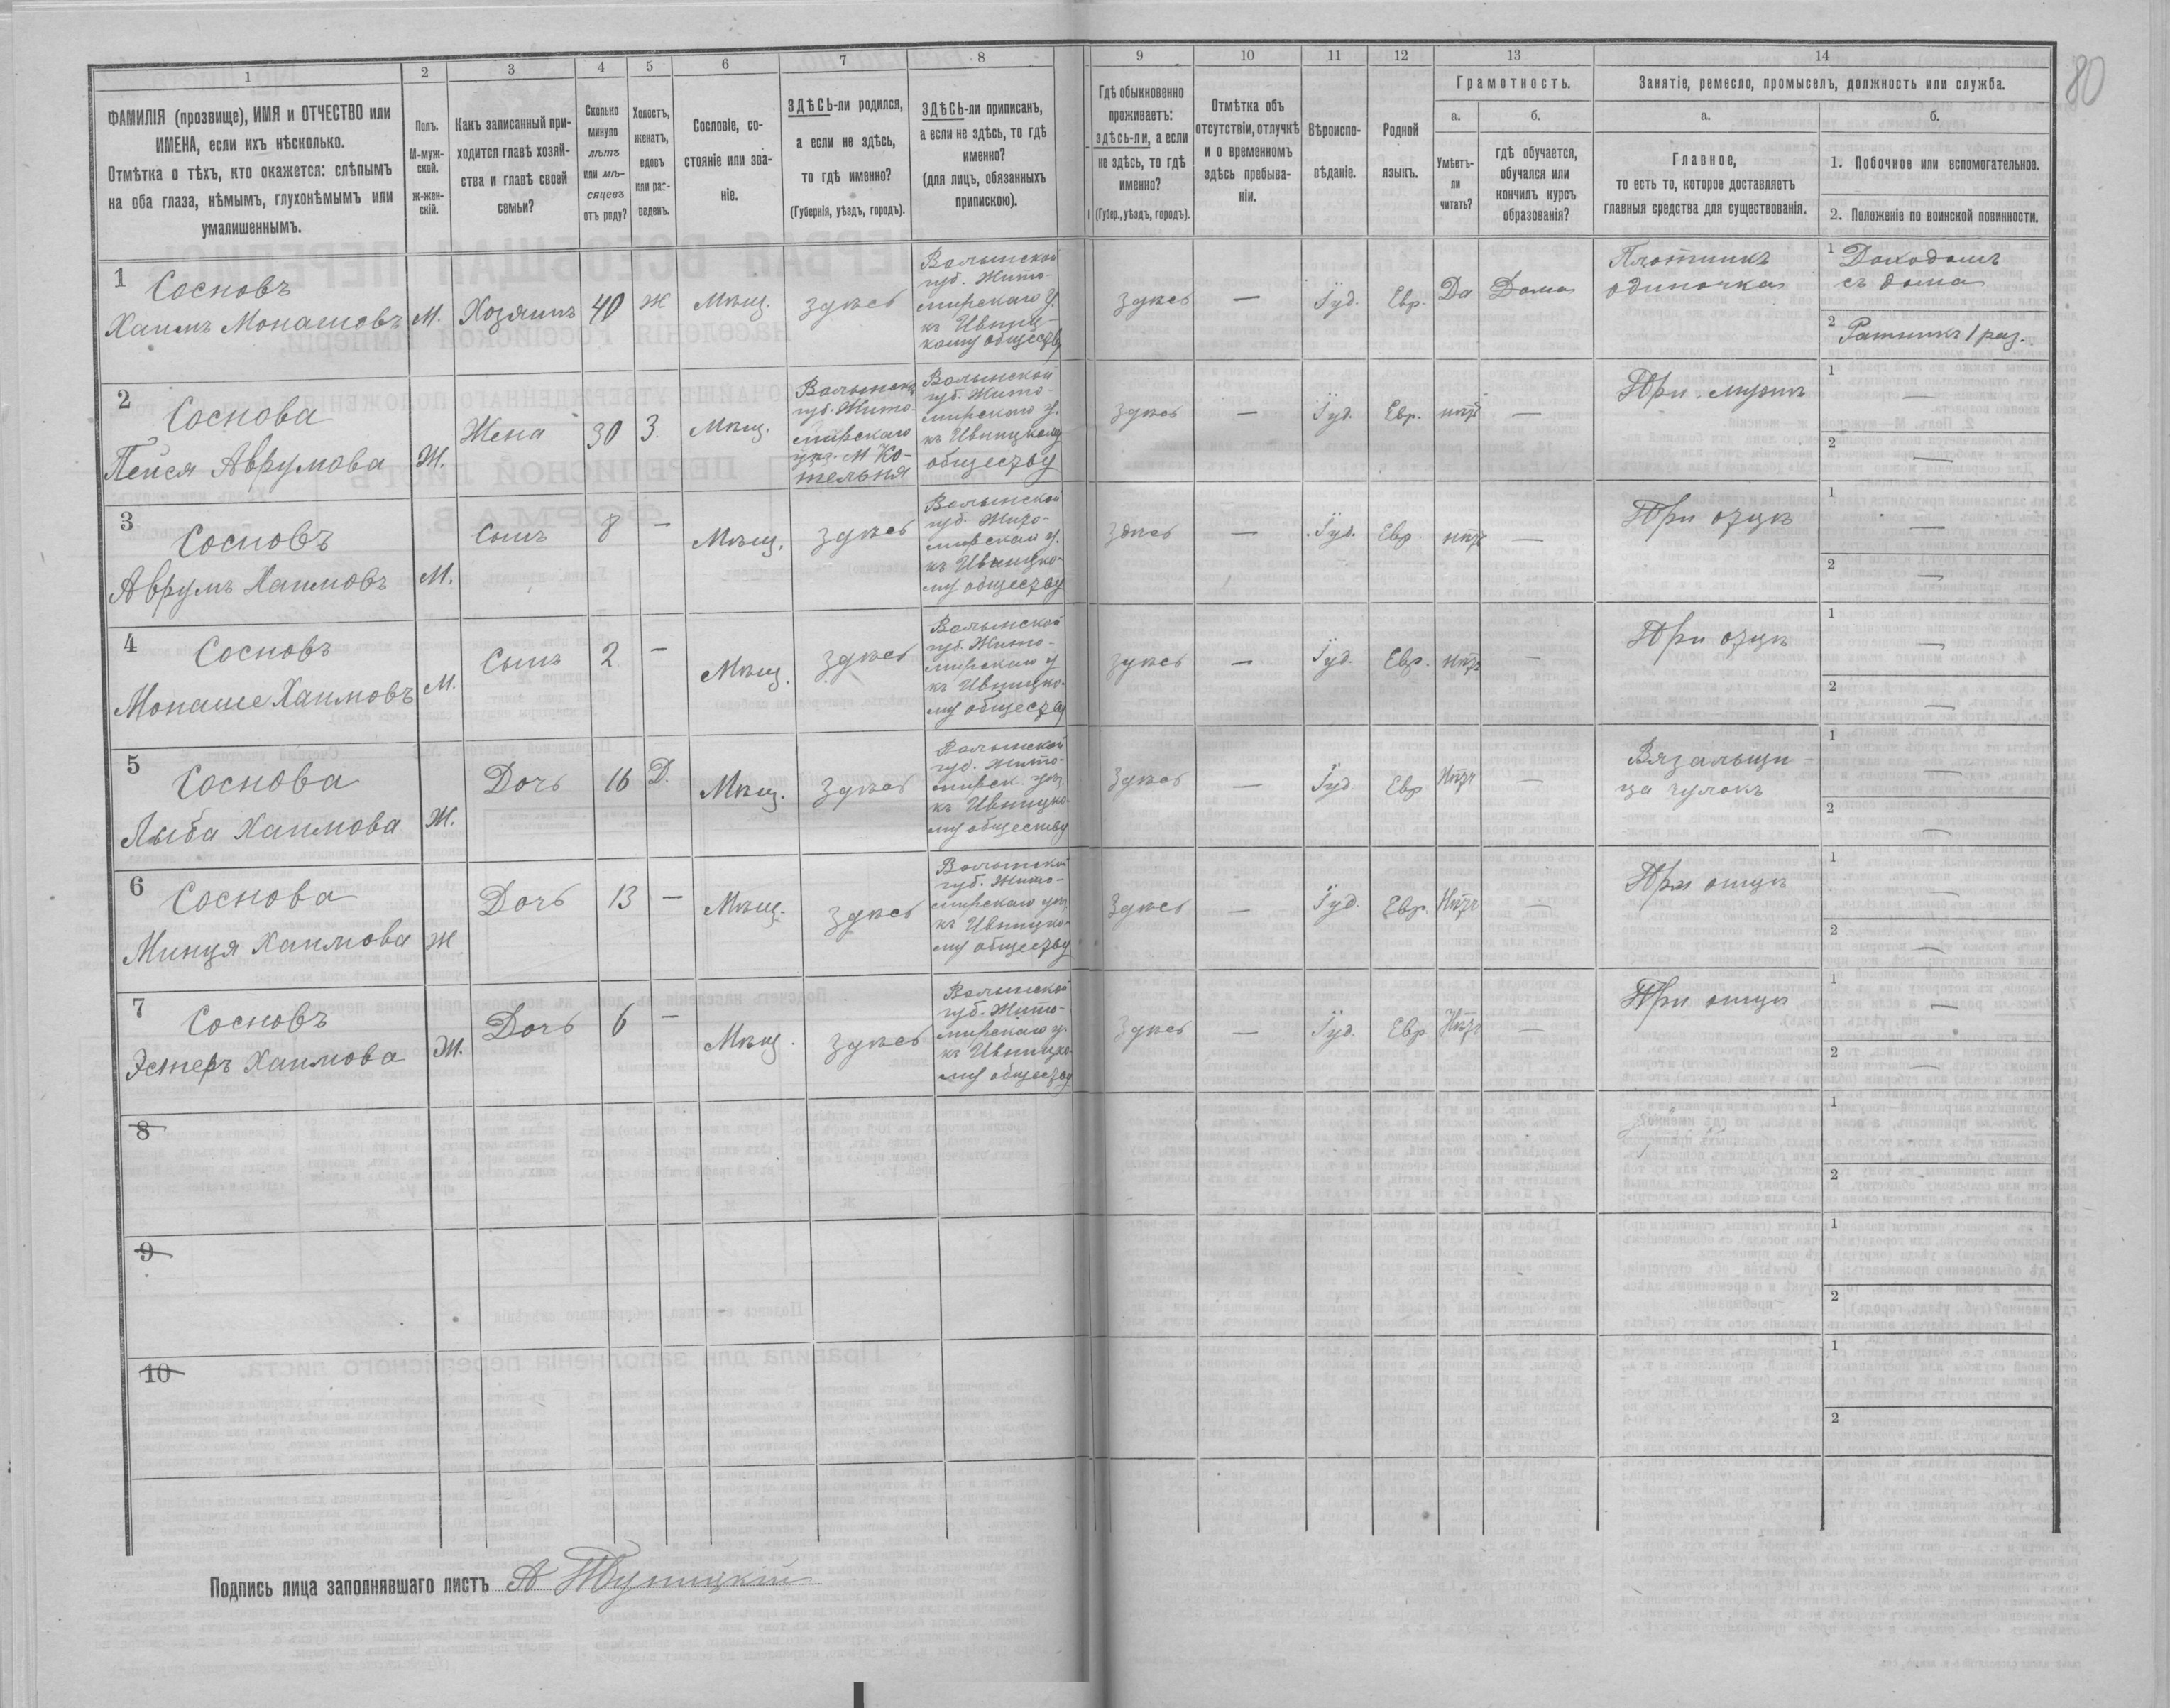 80
1
2
3
4
5
6
7
8
9
10
11
12
13
14
ФАМИЛІЯ (прозвище), ИМЯ и ОТЧЕСТВО или
ИМЕНА, если ихъ нѣсколько.
Отмѣтка о тѣхъ, кто окажется: слѣпымъ
на оба глаза, нѣмымъ, глухонѣмымъ или
умалишеннымъ.
Полъ.
М-муж-
ской.
ж-жен-
скій.
Какъ записанный при-
ходится главѣ хозяй-
ства и главѣ своей
семьи?
Сколько
минуло
лѣтъ
или мѣ-
сяцевъ
отъ роду?
Холостъ,
женатъ,
вдовъ
или раз-
веденъ.
Сословіе, со-
стояніе или зва-
ніе.
ЗДѢСЬ-ли родился,
а если не здѣсь,
то гдѣ именно?
(Губернія, уѣздъ, городъ).
ЗДѢСЬ-ли приписанъ,
а если не здѣсь, то гдѣ
именно?
(для лицъ, обязанныхъ
припискою).
Гдѣ обыкновенно
проживаетъ:
здѣсь-ли, а если
не здѣсь, то гдѣ
именно?
(Губер., уѣздъ, городъ).
Отмѣтка объ
отсутствіи, отлучкѣ
и о временномъ
здѣсь пребыва-
ніи.
Вѣроиспо-
вѣданіе.
Родной
языкъ.
Грамотность.
а.
Умѣетъ-
ли
читать?
б.
гдѣ обучается,
обучался или
кончилъ курсъ
образованія?
Занятіе, ремесло, промыселъ, должность или служба.
а.
Главное,
то есть то, которое доставляетъ
главныя средства для существованія.
б.
1. Побочное или вспомогательное.
2. Положеніе по воинской повинности.
1
Сосновъ
Хаимъ Монашовъ
М.
Хозяинъ
40
Ж
Мѣщ.
здѣсь
Волынской
губ. Жито-
мирскаго у.
къ Ивниц-
кому обществу
здѣсь
—
Іуд.
Евр.
Да
Дома
Плотникъ
одиночка
1 Доходомъ
съ дома
2 Ратникъ 1 раз.
2
Соснова
Пейся Аврумова
Ж.
Жена
30
З.
Мѣщ.
Волынской
губ. Жито-
мирскаго
уѣз. м Ко-
тельня
Волынской
губ. Жито-
мирскаго у.
къ Ивницкому
обществу
здѣсь
—
Іуд.
Евр.
нѣтъ
—
При мужѣ
1 —
2 —
3
Сосновъ
Аврумъ Хаимовъ
М.
Сынъ
8
—
Мѣщ.
здѣсь
Волынской
губ. Жито-
мирскаго у.
къ Ивницко-
му обществу
здѣсь
—
Іуд.
Евр
нѣтъ
—
При отцѣ
1 —
2 —
4
Сосновъ
Монаше Хаимовъ
М.
Сынъ
2
—
Мѣщ.
здѣсь
Волынской
губ. Жито-
мирскаго у
къ Ивницко-
му обществу
здѣсь
—
Іуд.
Евр.
нѣтъ
—
При отцѣ
1 —
2 —
5
Соснова
Лыба Хаимова
Ж.
Дочь
16
Д.
Мѣщ.
здѣсь
Волынской
губ. Жито-
мирск. уѣз.
къ Ивницко-
му обществу
Здѣсь
—
Іуд.
Евр
Нѣтъ
—
Вязальщи-
ца чулокъ
1 —
2 —
6
Соснова
Минця Хаимова
Ж
Дочь
13
—
Мѣщ.
здѣсь
Волынской
губ. Жито-
мирскаго уѣз.
къ Ивницко-
му обществу
Здѣсь
—
Іуд.
Евр
Нѣтъ
—
При отцѣ
1 —
2 —
7
Сосновъ
Эстеръ Хаимова
Ж.
Дочь
6
—
Мѣщ.
здѣсь
Волынской
губ. Жито-
мирскаго у.
къ Ивницко-
му обществу
Здѣсь
—
Іуд.
Евр
Нѣтъ
—
При отцѣ
1 —
2 —
8
1
2
9
1
2
10
1
2
Подпись лица заполнявшаго листъ А